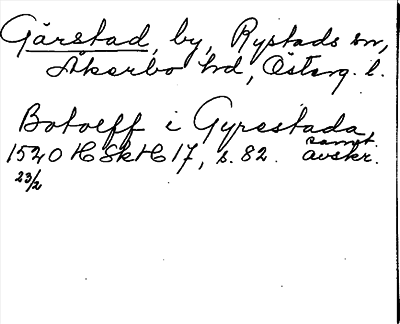 Gärstad, by, Rystads sn,
Åkerbo hd, Österg. l.
Botolff i Gyrestada,
samt.
1540 HSkH 17, s. 82. avskr.
23/2